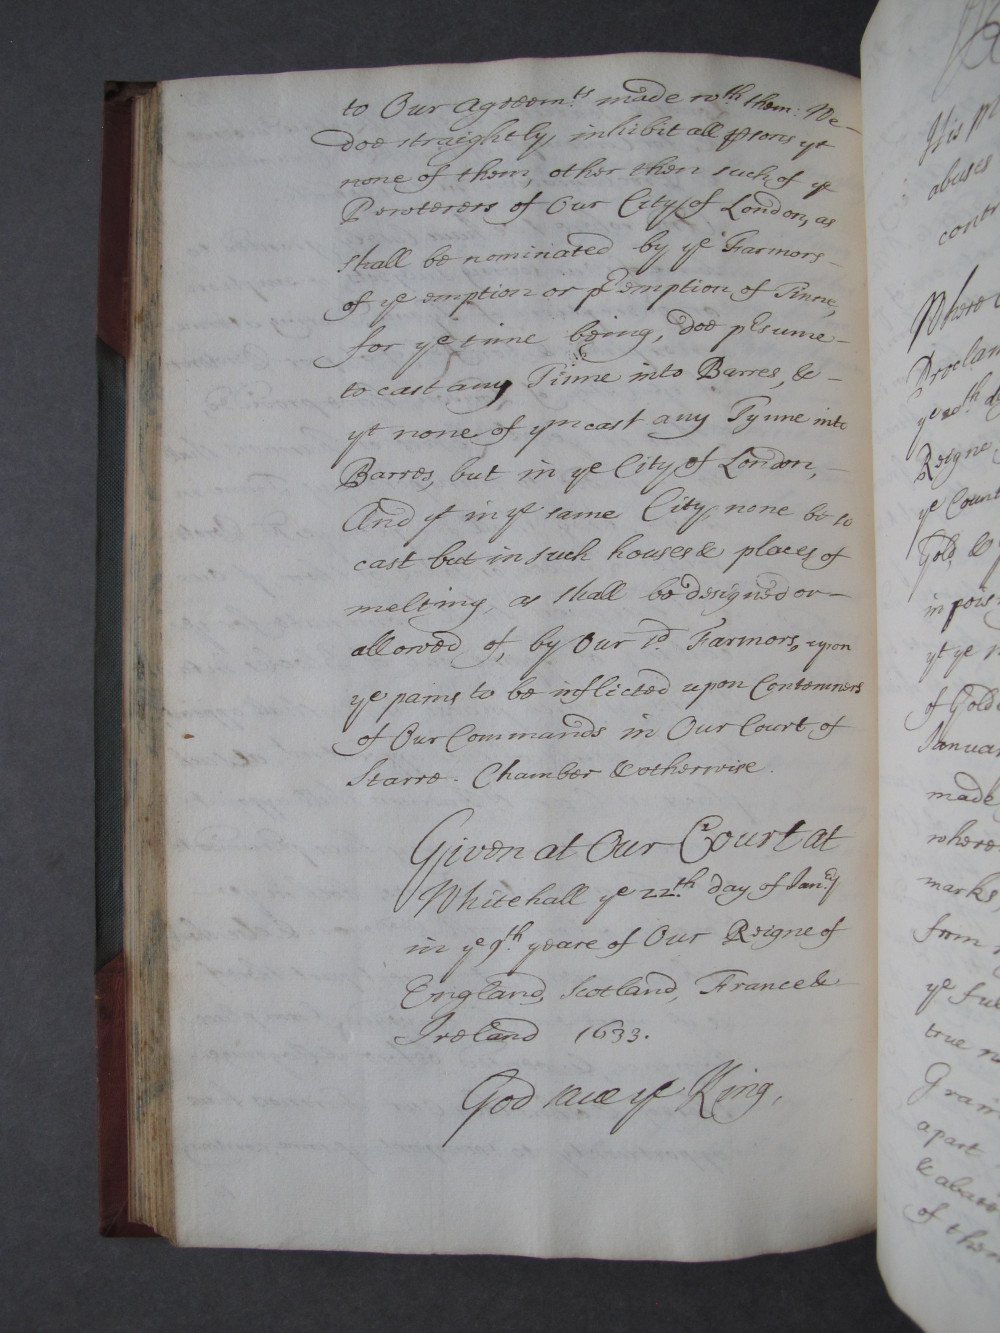 to Our Agreemts. made wth them. We-
doe straightly, inhibit all psons yt
none of them, other then such of ye
Pewterers of Our City of London, as
shall be nominated by ye Farmors-
of ye emption or premption of Tinne,
for ye time being, doe pesume-
to cast any Tinne into Barres, &-
yt none of ym cast any Tynne into
Barres, but in ye City of London,-
And yt in ye same City, none be so
cast but in such houses & places of
melting as shall be designed or-
allowed of, by Our sd. Farmors, upon
ye pains to be inflicted upon Contemners
of Our Commands in Our Court of
Starre-Chamber & otherwise.
Given at Our Court at
Whitehall ye 22th. day of Janry
in ye 9th yeare of Our Reigne of
England, Scotland, France &
Ireland 1633.
God save ye King.
His
abuses
contr
Where
Proclam
ye 20th. d
Reigne
ye Count
Gold &
in pois
yt ye
of Gold
Januar
made
where
marks,
from
ye ful
true
Grain
apart
& abate
of them